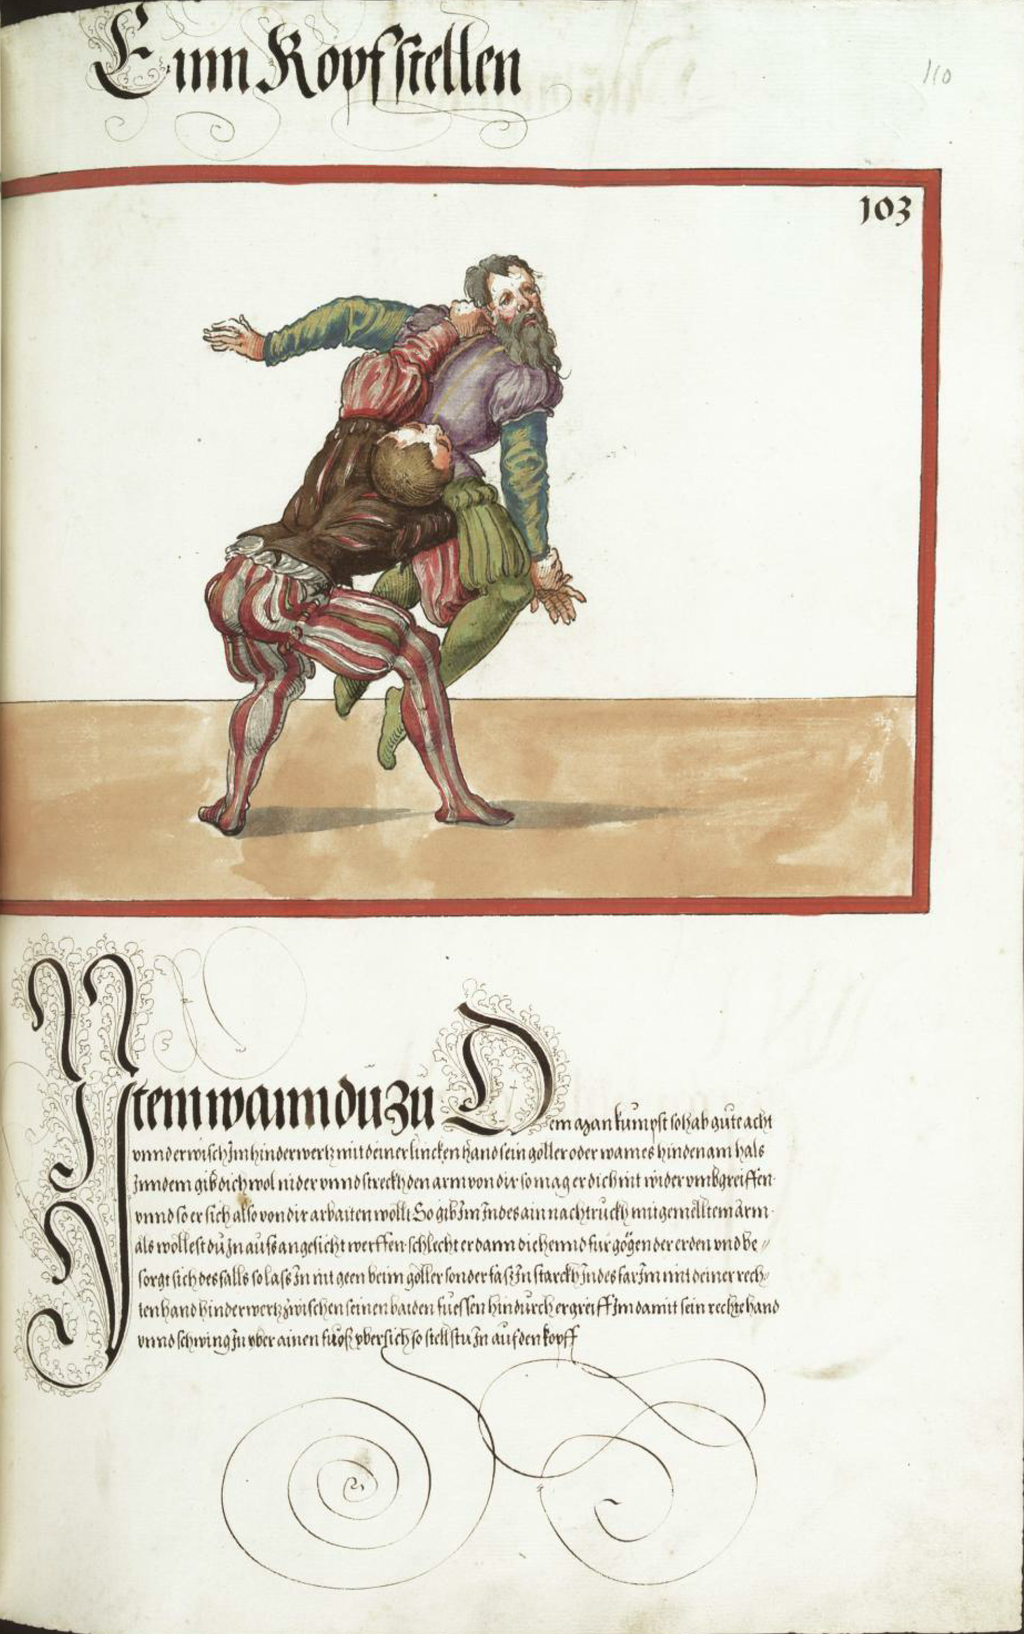 Einn Kopfstellen
110
103
Item wann du zu Dem man kumpst so hab gute acht
vnnd erwisch Im hinderwertz mit deiner lincken hand sein göller oder wames hinden am hals
Inn dem gib dich wol nider vnnd streckh den arm von dir so mag er dich nit wider vmbgreiffen
vnnd so er sich also von dir arbaiten wöllt So gib Im Indes ain nachtruckh mit gemelltem arm
als wöllest du In aufs angesicht werffen schlecht er dann die hennd für gögen der erden vnd be//
sorgt sich des falls so lass In nit geen beim göller sonder fass In starckh Indes far Im mit deiner rech-
ten hand hinderwertz zwischen seinen baiden fuessen hindurch ergreiff Im damit sein rechte hand
vnnd schwing In yber ainen fuoß ybersich so stellstu In auf den kopff